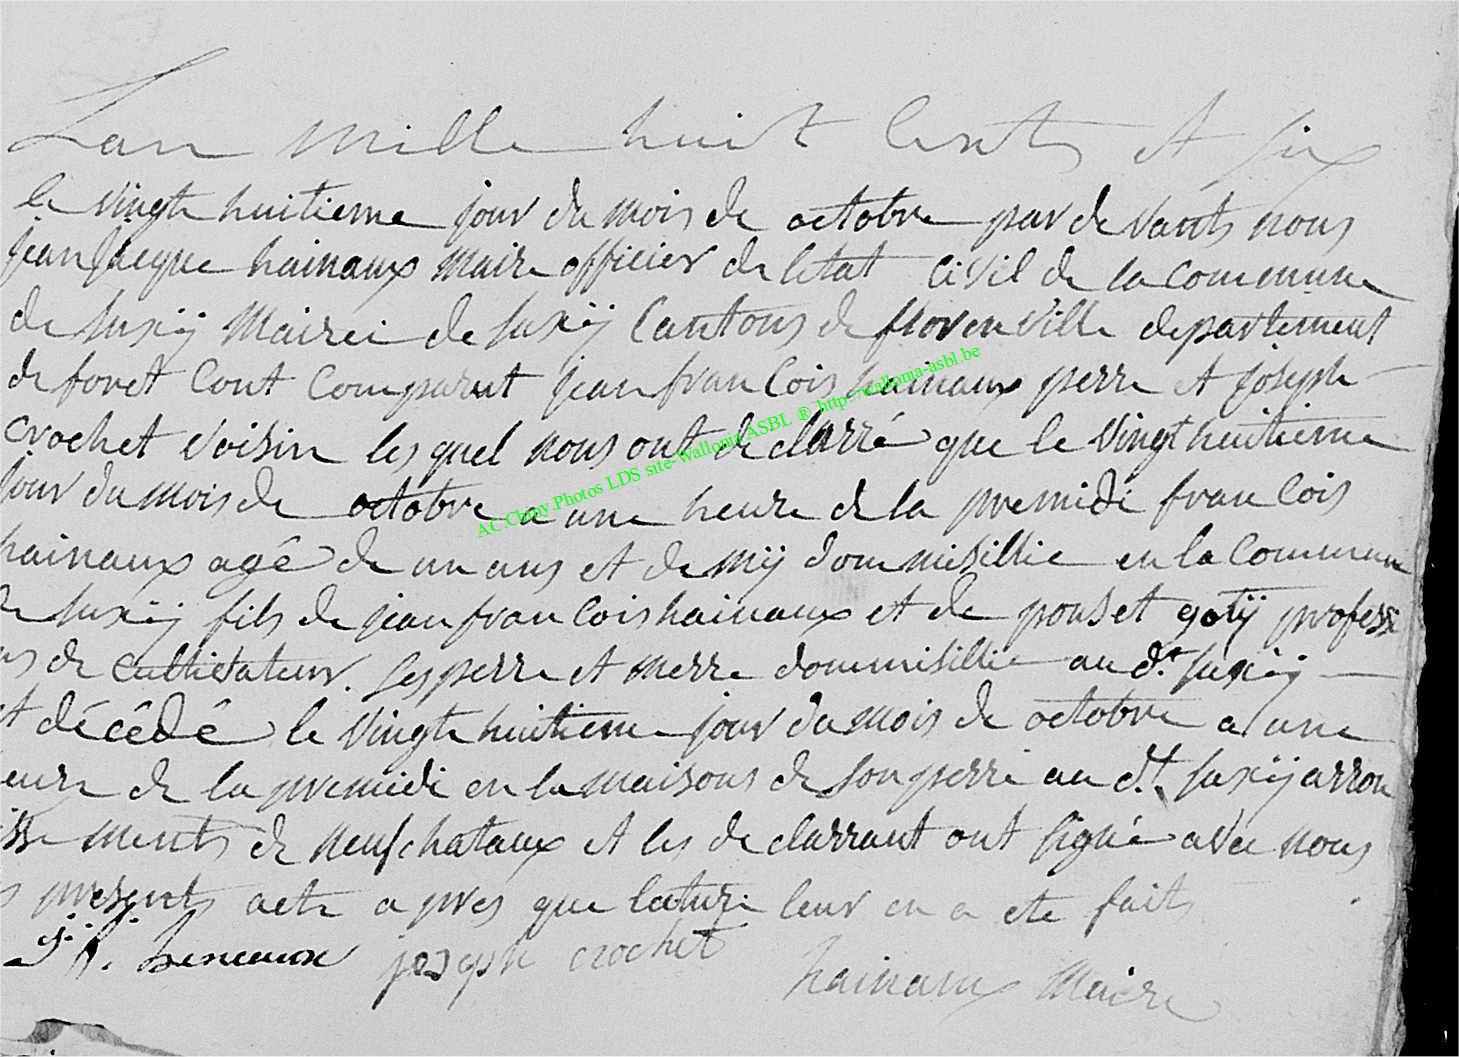 Lan mille huit Cents et six
le vingt huitieme jour du mois de octobre par de vants nous
jean jacque hainaux maire officier de letat Civil de la commune
de suxÿ Mairei de suxÿ Cantons de florenville departement
de foret Cont Comparut jean fran Cois hainaux perre et joseph
crochet voisin les quel nous ont de clarré que le vingt huitieme
jour du mois de octobre a une heure de la premidi fran Cois
hainaux agé de un ans et de mÿ dommisillie en la Commune
suxÿ fils de jean fran Cois hainaux et de pouset gotÿ professi
ons de cultivateur. ses perre et merre dommisillie au d.t suxÿ
et décédé le vingt huitieme jour du mois de octobre a une
eure de la premidi en la maisons de son perre au d.t suxÿ arron
isse ments de neufchataux et les de clarrant ont signé avec nous
presents acte a pres que lature leur en a ete faits
j. f. heneaux joseph crochet
hainaux Maire
AC.Chiny.Photos LDS site-Wallonia ASBL ® http://wallonia-asbl.be